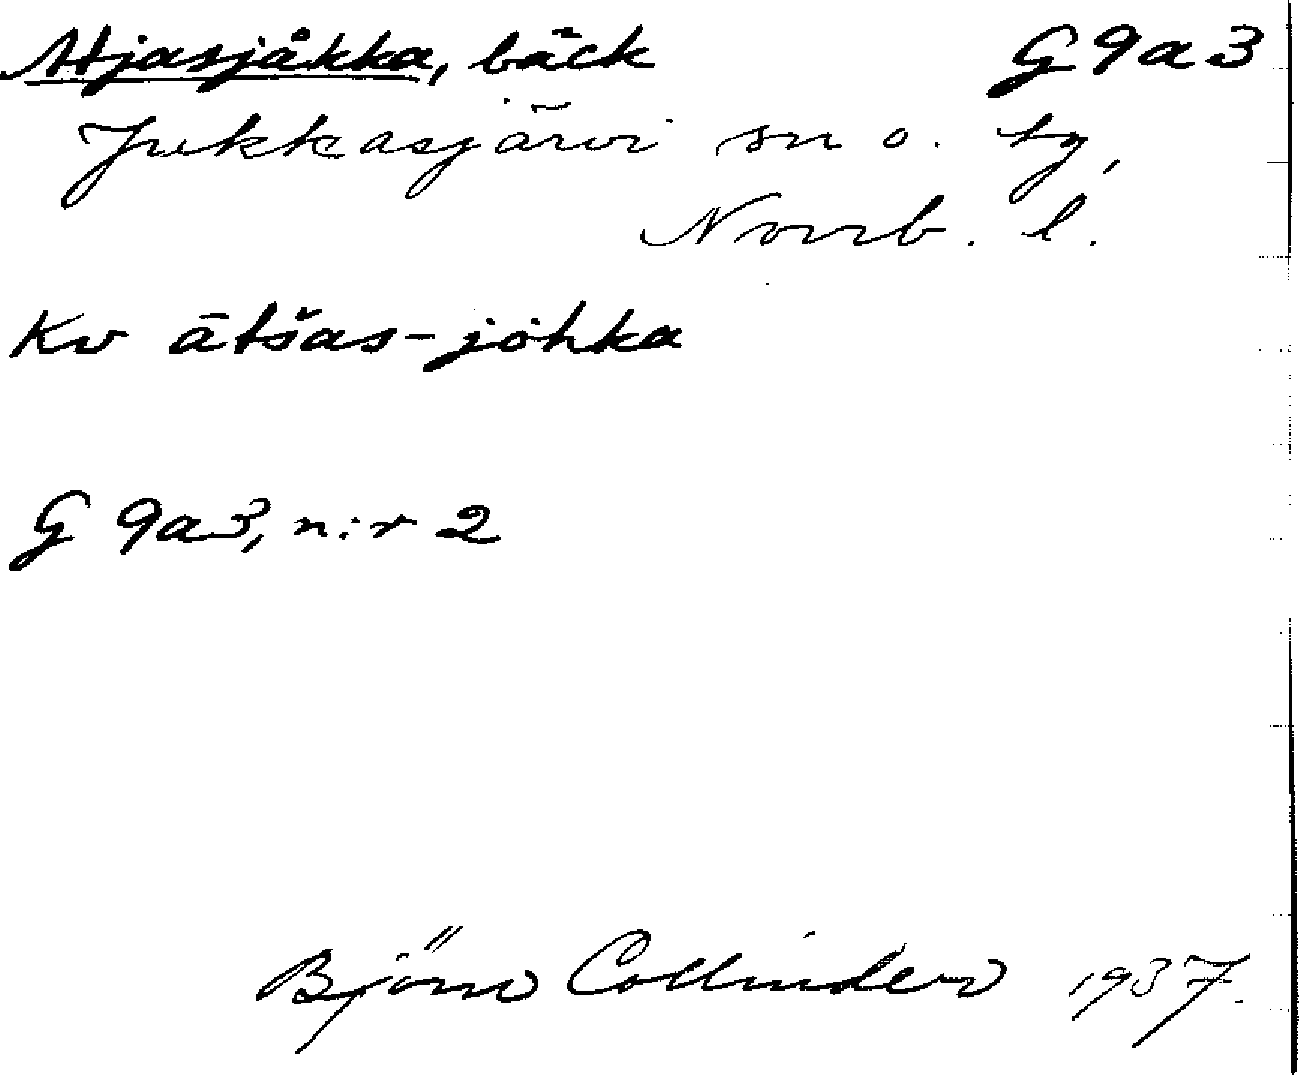 Atjasjåkka, bäck G 9 a 3
Jukkasjärvi sn o. tg,
Norrb. l.
Kv ātšas-johka
G 9a3, n:r 2
Björn Collinder 1937.